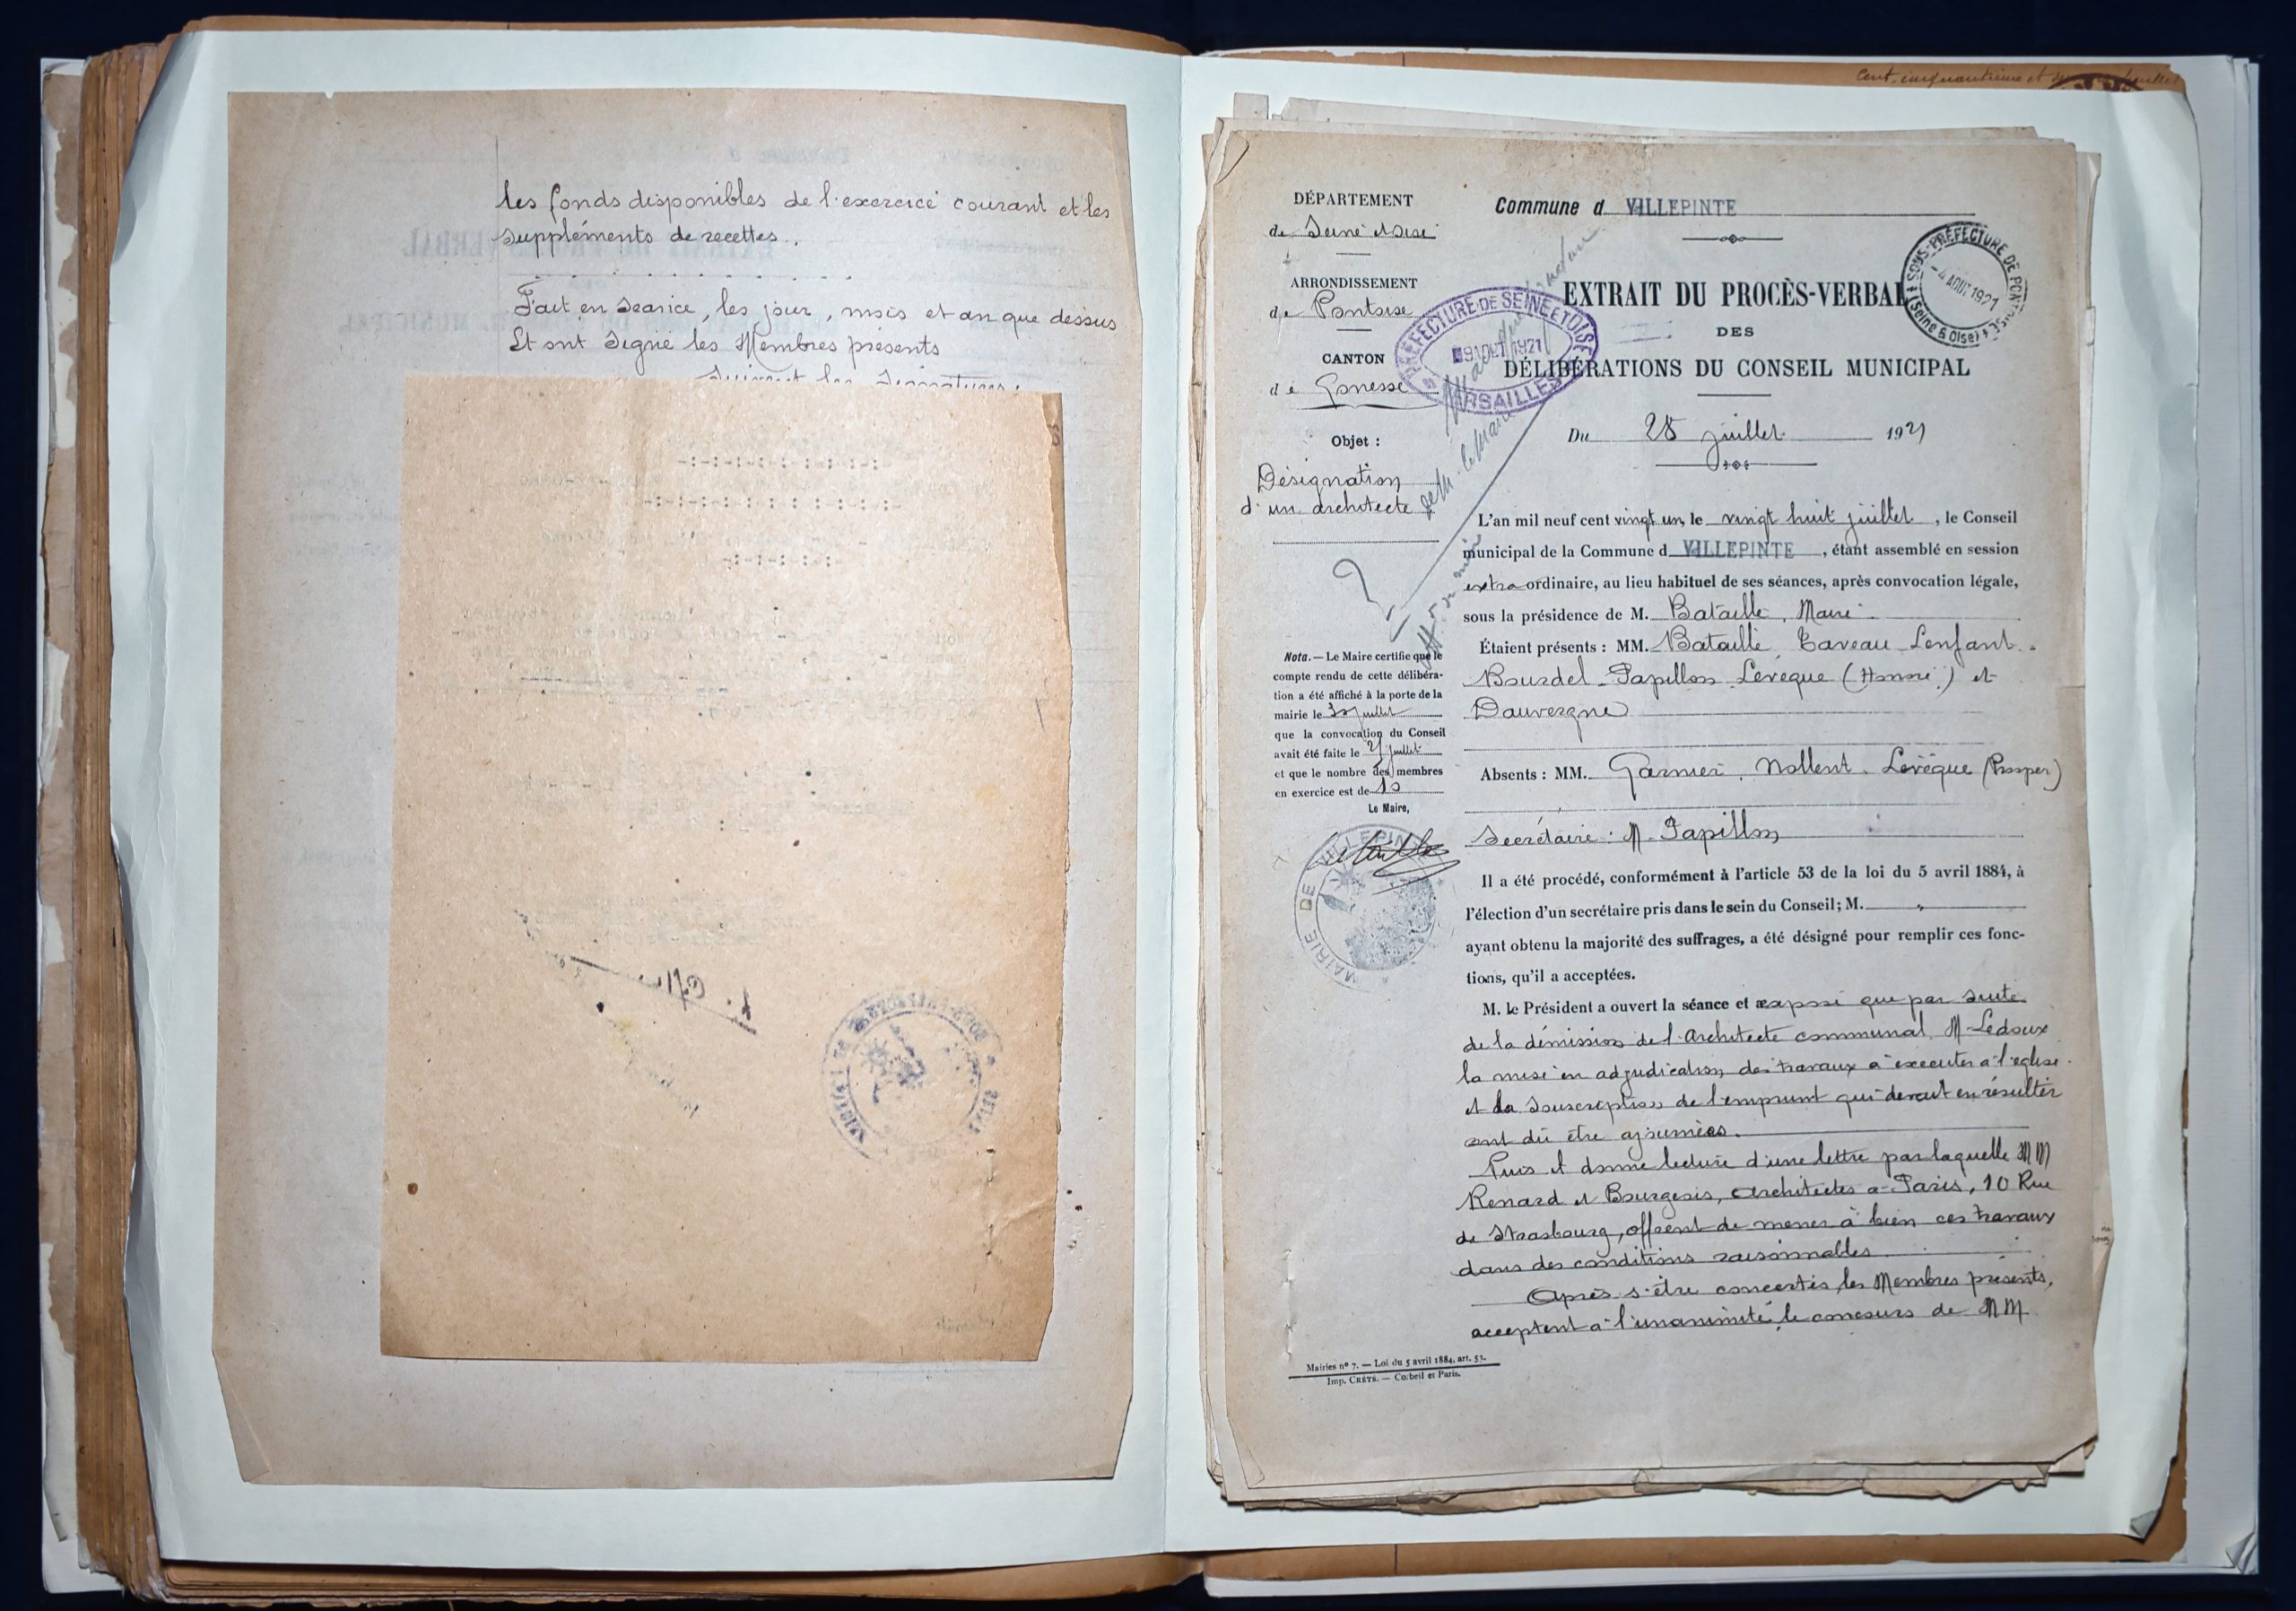 les fonds disponibles de l'exercice courant et les
suppléments de recettes.
Fait en séance, les jour, mois et an que dessus
Et ont signé les Membres présents
Suivent les signatures.
Cent cinquantième et
DÉPARTEMENT
de Seine et Oise
ARRONDISSEMENT
de Pontoise
CANTON
de Gonesse
Objet :
Désignation
d'un architecte
Nota. — Le Maire certifie que le
compte rendu de cette délibéra-
tion a été affiché à la porte de la
mairie le 30 juillet
que la convocation du Conseil
avait été faite le juillet
et que le nombre des membres
en exercice est de 10
Le Maire,
MAIRIE DE VILLEPINTE
Commune d VILLEPINTE
SOUS-PRÉFECTURE DE PONTOISE
-4 AOUT 1921
(Seine & Oise)
PRÉFECTURE DE SEINE ET OISE
1921
VERSAILLES
EXTRAIT DU PROCÈS-VERBAL
DES
DÉLIBÉRATIONS DU CONSEIL MUNICIPAL
Du 28 juillet 1921
L'an mil neuf cent vingt un, le vingt huit juillet, le Conseil
municipal de la Commune d VILLEPINTE, étant assemblé en session
extraordinaire, au lieu habituel de ses séances, après convocation légale,
sous la présidence de M. Bataille, Maire
Étaient présents : MM. Bataille, Taveau Lenfant
Bourdel Papillon Lévèque (Honoré) et
Dauvergne
Absents : MM. Garnier, Nollent, Lévèque (Prosper)
Secrétaire : M. Papillon
Il a été procédé, conformément à l'article 53 de la loi du 5 avril 1884, à
l'élection d'un secrétaire pris dans le sein du Conseil; M. "
ayant obtenu la majorité des suffrages, a été désigné pour remplir ces fonc-
tions, qu'il a acceptées.
M. le Président a ouvert la séance et a exposé que par suite
de la démission de l'Architecte communal M. Ledoux
la mise en adjudication des travaux à exécuter à l'église
et la souscription de l'emprunt qui devait en résulter
ont dû être ajournées.
Puis il donne lecture d'une lettre par laquelle MM
Renard et Bourgeois, architectes à Paris, 10 Rue
de Strasbourg, offrent de mener à bien ces travaux
dans des conditions raisonnables
Après s'être concertés, les Membres présents,
acceptent à l'unanimité le concours de MM.
Mairies n° 7. — Loi du 5 avril 1884, art. 53.
Imp. CRÉTÉ. — Corbeil et Paris.